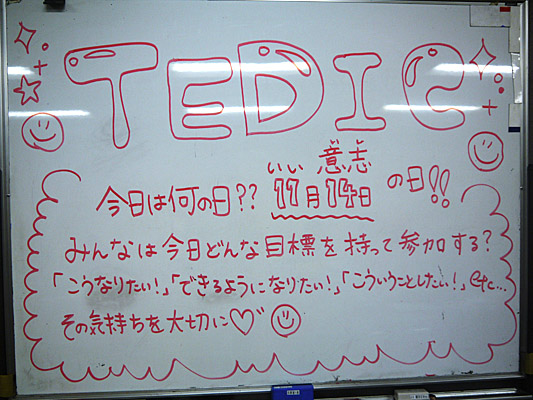 TEDIC
いい 意志
今日は何の日?? 11月14日 の日!!
みんなは今日どんな目標を持って参加する?
「こうなりたい!」「できるようになりたい!」「こういうことしたい!」etc...
その気持ちを大切に♡